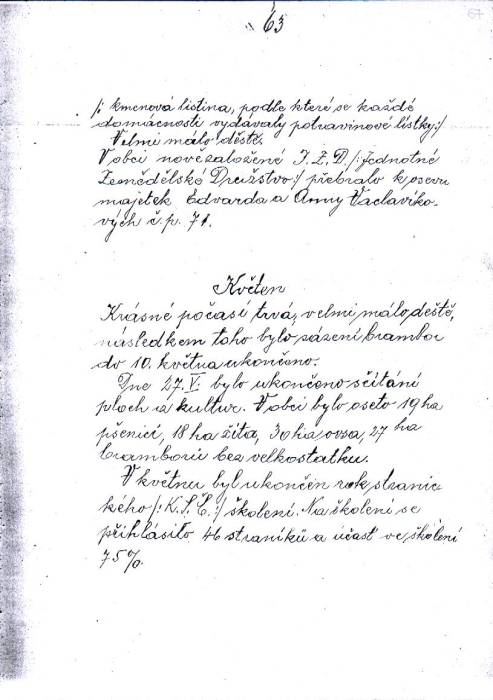 63
/: kmenová listina, podle které se každé
domácnosti vydávaly potravinové lístky:/
Velmi málo deště.
V obci nově založené J. Z. D. /: Jednotné
Zemědělské Družstvo :/ přebralo k osevu
majetek Edvarda a Anny Václavíko-
vých č. p. 71.
Květen
Krásné počasí trvá, velmi málo deště,
následkem toho bylo sázení brambor
do 10. května ukončeno.
Dne 27. V. bylo ukončeno sčítání
ploch a kultur. V obci bylo oseto 19 ha
pšenicí, 18 ha žita, 30 ha ovsa, 27 ha
bramborů bez velkostatku.
V květnu byl ukončen rok stranic
kého /: K. S. Č. :/ školení. Na školení se
přihlásilo 46 straníků a účast ve školení
75%.